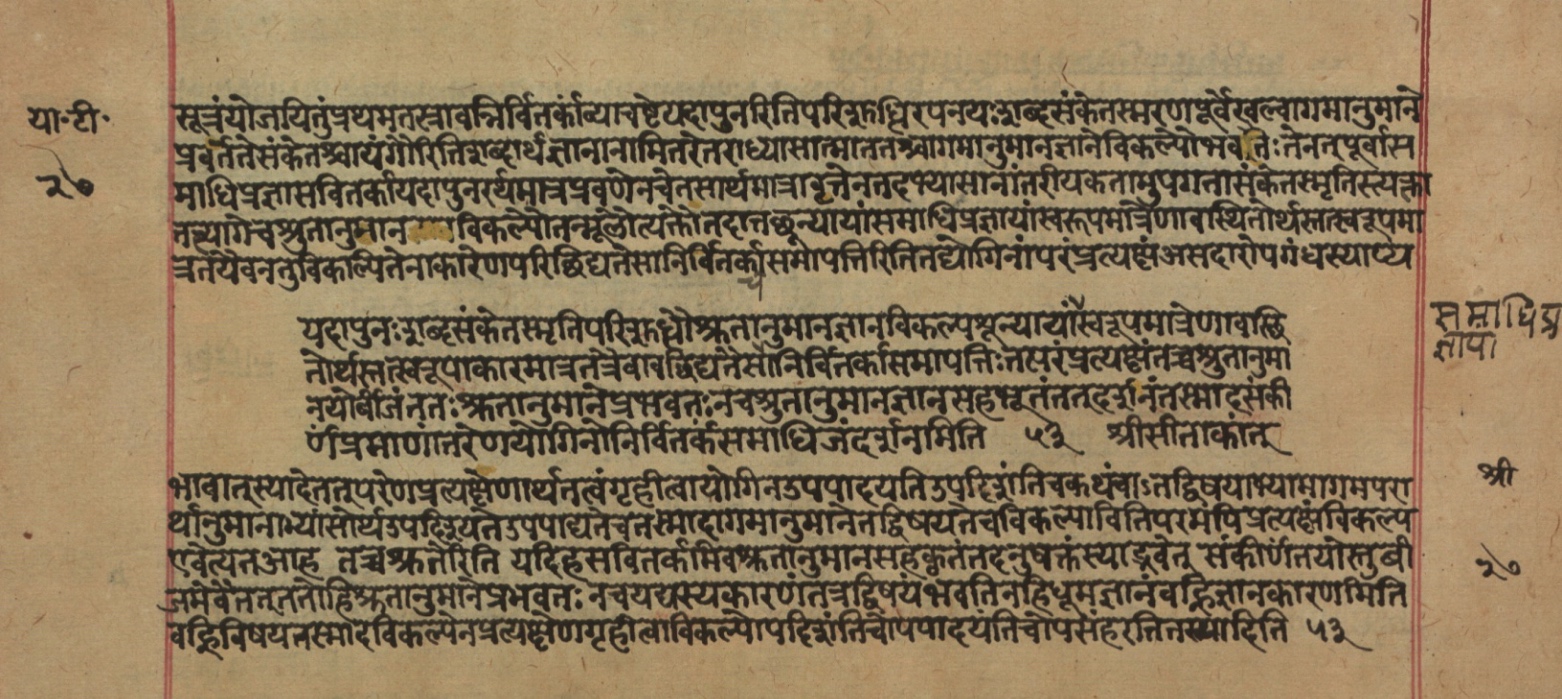 या॰टी॰
२७
सूत्रंयोजयितुंप्रथमतस्तावन्निर्वितर्कांव्याचष्टेयदापुनरितिपरिशुद्धिरपनयःशब्दसंकेतस्मरणपूर्वेखल्वागमानुमाने
प्रवर्तेतेसंकेतश्चायंगौरितिशब्दार्थज्ञानानामितरेतराध्यासात्माततश्चागमानुमानज्ञानेविकल्पोभवतिःतेनतत्पूर्वास
माधिप्रज्ञासवितर्कायदापुनरर्थमात्रप्रवणेनचेतसार्थमात्रादृत्तेनतदभ्यासानांतरीयकतामुपगतासंकेतस्मृतिस्त्यक्ता
तत्त्यागेचश्रुतानुमानविकल्पौतन्मूलौत्यक्तौतदातच्छून्यायांसमाधिप्रज्ञायांस्वरूपमात्रेणावस्थितोर्थस्तत्स्वरूपमा
त्रतयैवनतुविकल्पितेनाकारेणपरिछिद्यतेसानिर्वितर्कासमापत्तिरितितद्योगिनांपरंप्रत्यक्षंअसदारोपगंधस्याप्य
यदापुनःशब्दसंकेतस्मृतिपरिशुद्धौश्रुतानुमानज्ञानविकल्पशून्यायांस्वरूपमात्रेणावस्थि
समाधिप्र
ज्ञायां
तोर्थस्तत्स्वरूपाकारमात्रतयैवावछिद्यतेसानिर्वितर्कासमापत्तिःतत्परंप्रत्यक्षंतच्चश्रुतानुमा
नयोर्बीजंततःश्रुतानुमानेप्रभवतःनचश्रुतानुमानज्ञानसहभूतंतत्दर्शनंतस्मादसंकी
र्णंप्रमाणांतरेणयोगिनोनिर्वितर्कसमाधिजंदर्शनमिति ५३ श्रीसीताकांत्
भावात्स्यादेतत्परेणप्रत्यक्षेणार्थतत्वंगृहीत्वायोगिनउपपादयतिउपदिशंतिचकथंचाऽतद्विषयाभ्यामागमपरा
श्री
र्थानुमानाभ्यांसोर्थउपदिश्यतेउपपाद्यतेचतस्मादागमानुमानेतद्विषयेतेचविकल्पावितिपरमपिप्रत्यक्षंविकल्प
एवेत्यतआह तच्चश्रुतेरिति यदिहसवितर्कमिवश्रुतानुमानसहकृतंतदनुषक्तंस्याद्भवेत् संकीर्णंतयोस्तुबी
२७
जमेवैतत्ततोहिश्रुतानुमानेप्रभवतः नचयद्यस्यकारणंतत्तद्विषयंभवतिनहिधूमज्ञानंवह्निज्ञानकारणमिति
वह्निविषयंतस्मादविकल्पेनप्रत्यक्षेणगृहीत्वाविकल्प्योपदिशंतिचोपपादयंतिचोपसंहरतितस्मादिति ५३